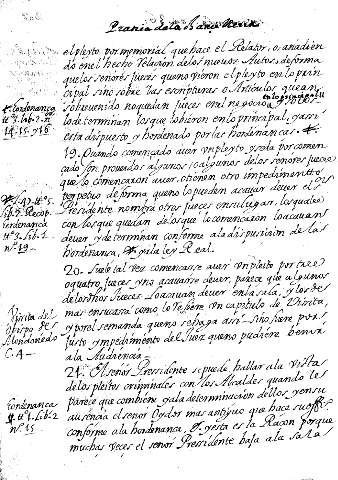 Practica de la Chanc
el pleyto por memorial que haçe el Relator, o, anadien
do en el hecho Relaçion de los nuevos Autos, de forma
que los señores jueçes que no vieron el pleyto en lo prin
çipal sino sobre las escripturas o Articulos que an
sobrevenido no quedan jueçes en el negoçio
lo determinan los que lo vieron en lo principal, y asi
esta dispuesto y hordenado por las hordenanças.
Hordenança
14. 15. y 16
19. Quando començado a ver un pleyto y esta por comen
çado son proveidos algunos
que lo començaron a ver, o tienen otro impedimento
perpetuo de forma que no lo pueden acavar de ver el Sr
Presidente nombra otros jueçes en su lugar, los quales
con los que quedan de los que lo començaron lo acavan
de ver y determinan conforme a la dispusiçion de la
hordenança, y la ley Real.
Recop.
hordenança
nº 19
20. Suele tal vez començarse a ver un pleito por tres
o quatro jueçes y no acavarse de ver, pareçe que algunos
de los dhos Jueçes lo acavan de ver en la sala, y los de
mas en su casa como lo refiere un capitulo de Visita,
y por el semanda que no se haga asi. Sino fuere por
justo ympedimento del Juez que no pudiere benir
a la Audiençia.
Visita del
obispo de
Mondoñedo
C. 4
21. El señor Presidente se puede hallar a la vista
de los pleitos criminales con los Alcaldes quando les
pareçe que combiene y a la determinaçion de llos, y en su
ausençia el señor Oydor mas antiguo que haçe su offº
conforme a la hordenança, y esta es la Raçon porque
muchas veçes el señor Presidente baja a la sala
hordenança
nº 15